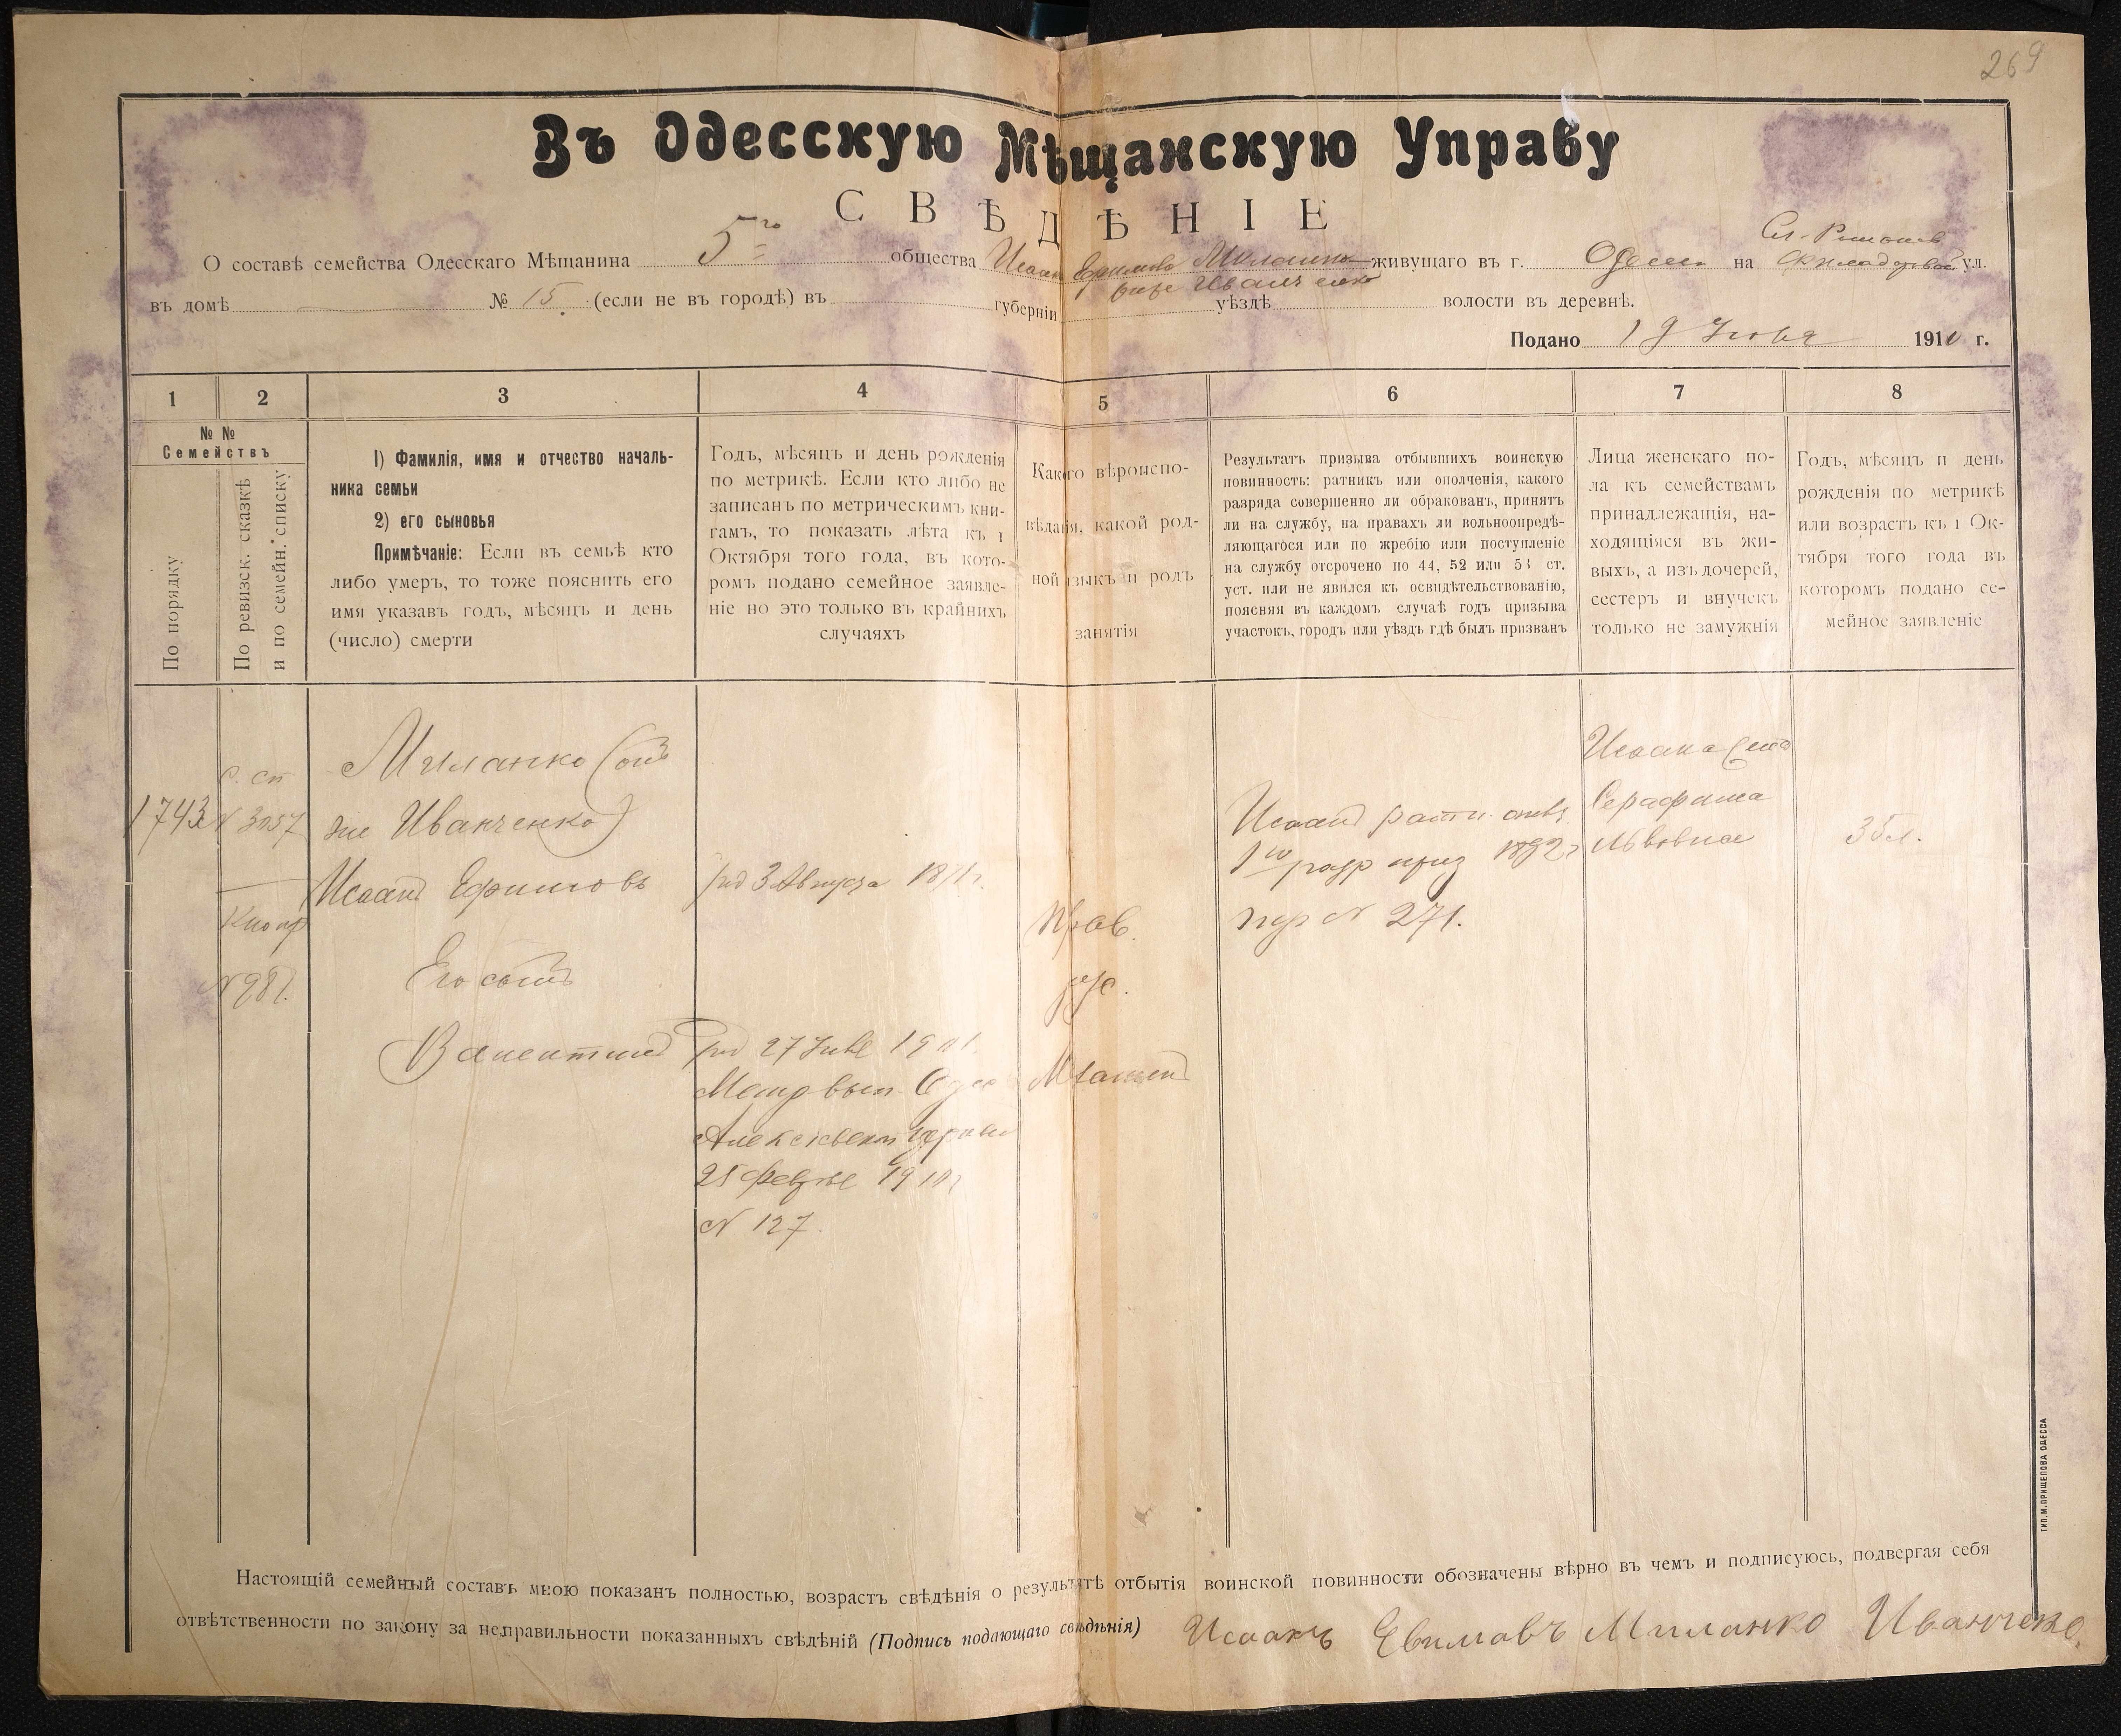 269
Въ Одесскую Мѣщанскую Управу
СВѢДѢНІЕ
Сл. Романов
О составѣ семейства Одесскаго Мѣщанина 5го общества Исаак Ефимова Миланко живущаго въ г. Одесса на ул.
онже Иванченко
въ домѣ № 15 (если не въ городѣ) въ губерніи уѣздѣ волости въ деревнѣ.
Подано 19 1910 г.
1 2 3 4 5 6 7 8
№ №
Семействъ
По порядку
По ревизск. сказкѣ
и по семейн. списку
1) Фамилія, имя и отчество началь-
ника семьи
2) его сыновья
Примѣчаніе: Если въ семьѣ кто
либо умеръ, то тоже пояснить его
имя указавъ годъ, мѣсяцъ и день
(число) смерти
Годъ, мѣсяцъ и день рожденія
по метрикѣ. Если кто либо не
записанъ по метрическимъ кни-
гамъ, то показать лѣта къ 1
Октября того года, въ кото-
ромъ подано семейное заявле-
ніе но это только въ крайнихъ
случаяхъ
Какого вѣроиспо-
вѣданія, какой род-
ной языкъ и родъ
занятія
Результатъ призыва отбывшихъ воинскую
повинность: ратникъ или ополченія, какого
разряда совершенно ли обракованъ, принятъ
ли на службу, на правахъ ли вольноопредѣ-
ляющагося или по жребію или поступленіе
на службу отсрочено по 44, 52 или 53 ст.
уст. или не явился къ освидѣтельствованію,
поясняя въ каждомъ случаѣ годъ призыва
участокъ, городъ или уѣздъ гдѣ былъ призванъ
Лица женскаго по-
ла къ семействамъ
принадлежащія, на-
ходящіяся въ жи-
выхъ, а изъ дочерей,
сестеръ и внучекъ
только не замужнія
Годъ, мѣсяцъ и день
рожденія по метрикѣ
или возрастъ къ 1 Ок-
тября того года въ
которомъ подано се-
мейное заявленіе
1743
с. сп
N 3057
N 981.
Миланко (онъ
же Иванченко)
Исаакъ Ефимовъ
Его сынъ
Валентинъ
род 3 Августа 1871 г.
род 27 1901.
Метр вып Одес
Алексіевской церкви
25 февраля 1910 г
N 127.
Прав.
рус.
Исаакъ ратн. опол.
1го разр приз 1892 г
N 271.
Исаака жена
Серафима
Львовна
35 л.
Настоящій семейный составъ мною показанъ полностью, возрастъ свѣдѣнія о результатѣ отбытія воинской повинности обозначены вѣрно въ чемъ и подписуюсь, подвергая себя
отвѣтственности по закону за неправильности показанныхъ свѣдѣній (Подпись подающаго свѣдѣнія) Исаакъ Евимовъ Миланко Иванченко.
ТИП. М. ПРИЩЕПОВА ОДЕССА